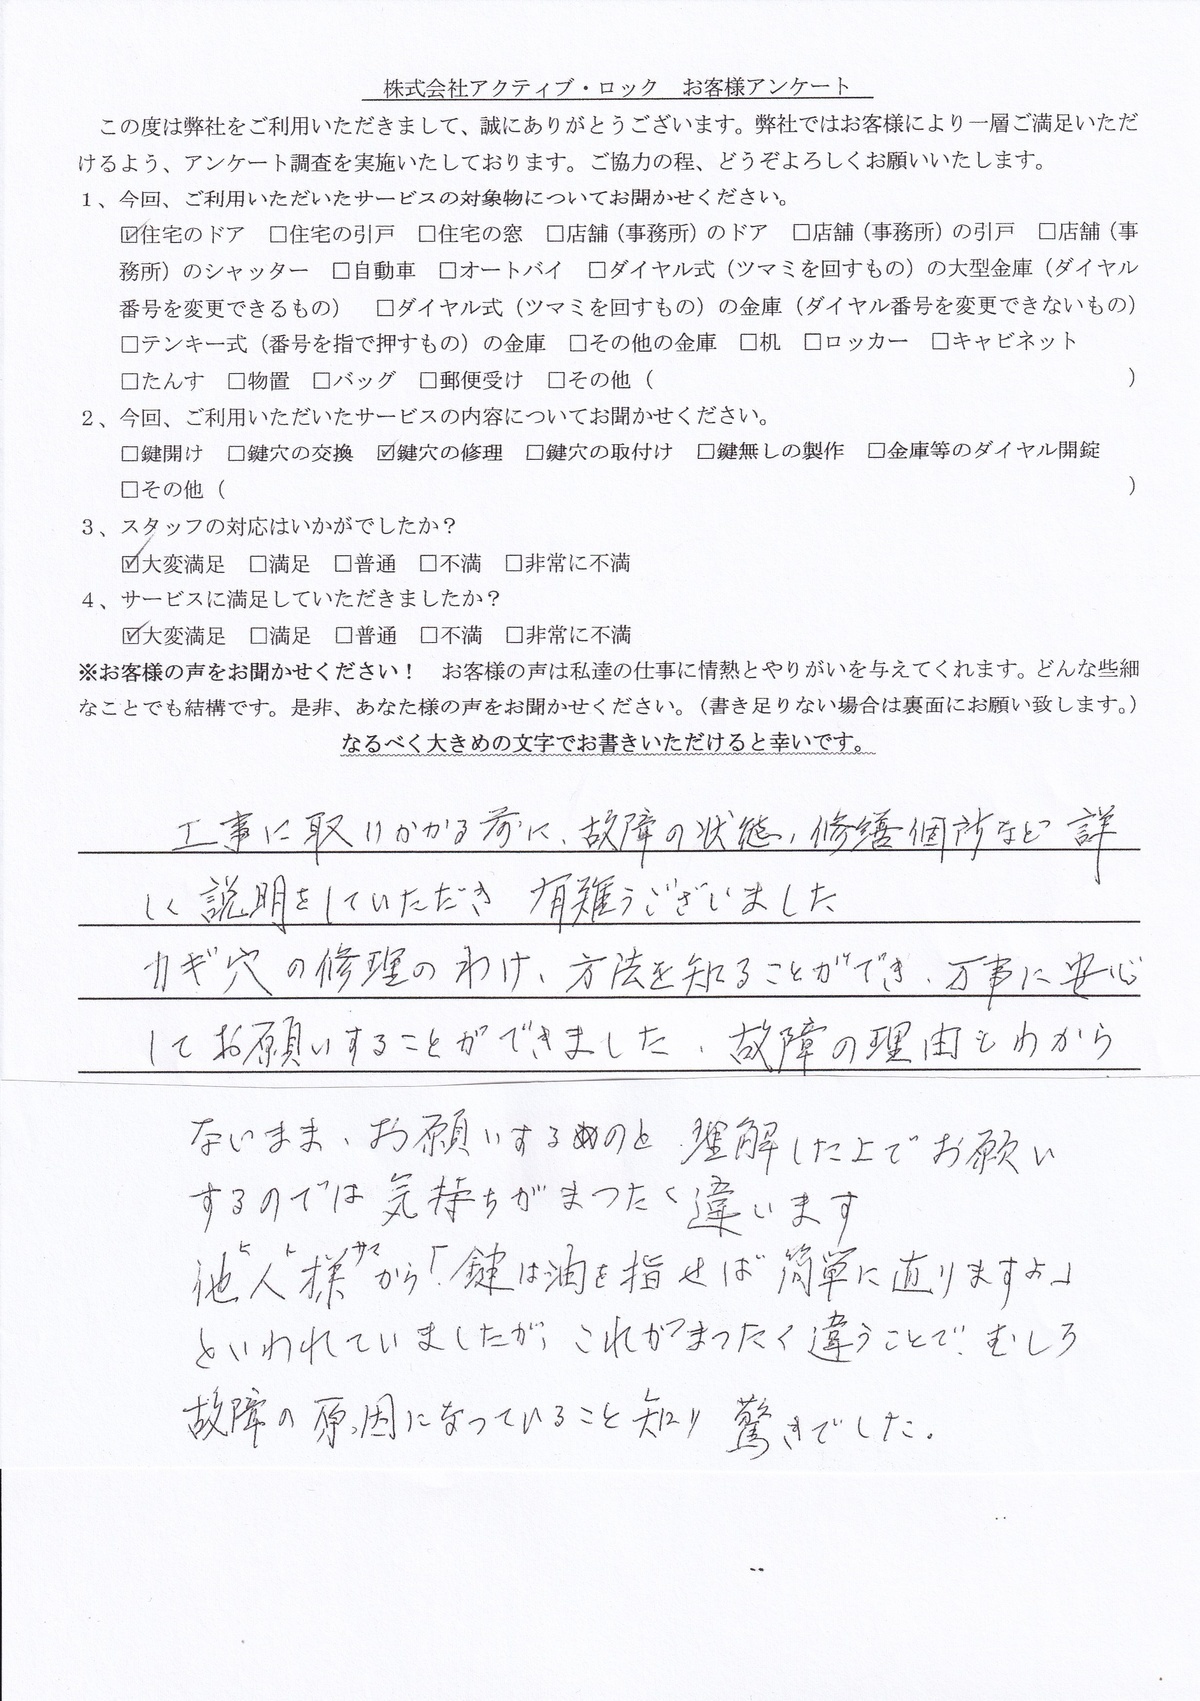 株式会社アクティブ・ロック　お客様アンケート
この度は弊社をご利用いただきまして、誠にありがとうございます。弊社ではお客様により一層ご満足いただ
けるよう、アンケート調査を実施いたしております。ご協力の程、どうぞよろしくお願いいたします。
１、今回、ご利用いただいたサービスの対象物についてお聞かせください。
☑住宅のドア　□住宅の引戸　□住宅の窓　□店舗（事務所）のドア　□店舗（事務所）の引戸　□店舗（事
務所）のシャッター　□自動車　□オートバイ　□ダイヤル式（ツマミを回すもの）の大型金庫（ダイヤル
番号を変更できるもの）　□ダイヤル式（ツマミを回すもの）の金庫（ダイヤル番号を変更できないもの）
□テンキー式（番号を指で押すもの）の金庫　□その他の金庫　□机　□ロッカー　□キャビネット
□たんす　□物置　□バッグ　□郵便受け　□その他（　　　　　　　　）
２、今回、ご利用いただいたサービスの内容についてお聞かせください。
□鍵開け　□鍵穴の交換　☑鍵穴の修理　□鍵穴の取付け　□鍵無しの製作　□金庫等のダイヤル開錠
□その他（　　　　　　　　）
３、スタッフの対応はいかがでしたか？
☑大変満足　□満足　□普通　□不満　□非常に不満
４、サービスに満足していただきましたか？
☑大変満足　□満足　□普通　□不満　□非常に不満
※お客様の声をお聞かせください！　お客様の声は私達の仕事に情熱とやりがいを与えてくれます。どんな些細
なことでも結構です。是非、あなた様の声をお聞かせください。（書き足りない場合は裏面にお願い致します。）
なるべく大きめの文字でお書きいただけると幸いです。
工事に取りかかる前に、故障の状態、修繕個所など詳
しく説明をしていただき 有難うございました
カギ穴の修理のわけ、方法を知ることができ、万事に安心
してお願いすることができました、故障の理由もわから
ないまま、お願いするのと 理解した上でお願い
するのでは気持ちがまったく違います
ヒト サマ
他人様から「鍵は油を指せば簡単に直りますよ」
といわれていましたが、これがまったく違うことで、むしろ
故障の原因になっていること知り 驚きでした。